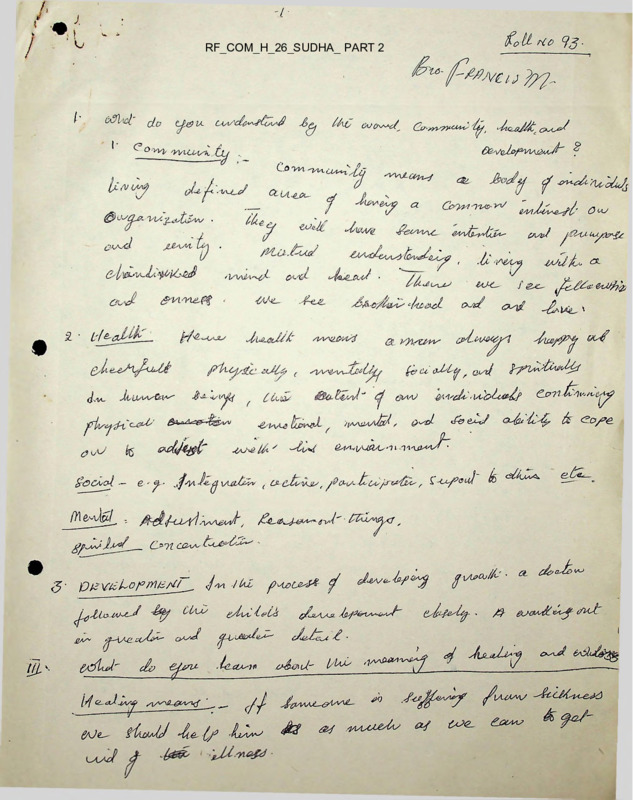 -1-
RF_COM_H_26_SUDHA_ PART 2
Roll no 93.
Bro. FRANCIS M.
1. What do you understand by the word, community, health, and
Development ?
1. Community :- Community means a body of individuals
living defined area of having a common interest or
Organization. They will have same intention and purpose
and unity. Mutual understanding, living with a
mind and heart. There we see fellowship
and onness. We see brotherhood and love.
2. Health: Here health means a man always happy and
cheerfull physically, mentally socially, and spiritually
In human beings, the extent of an individuals continuing
physical emotional, mental, and social ability to cope
or to adjust with his environment.
Social - e.g. Integration, active, participation, support to others etc.
Mental : Adjustment, things.
concentration.
3. DEVELOPMENT In the process of developing growth. a doctor
followed by the child's development closely. A working out
in greater and greater detail.
III. What do you learn about the meaning of healing and
Healing means :- If someone is suffering from sickness
we should help him as much as we can to get
rid of illness.